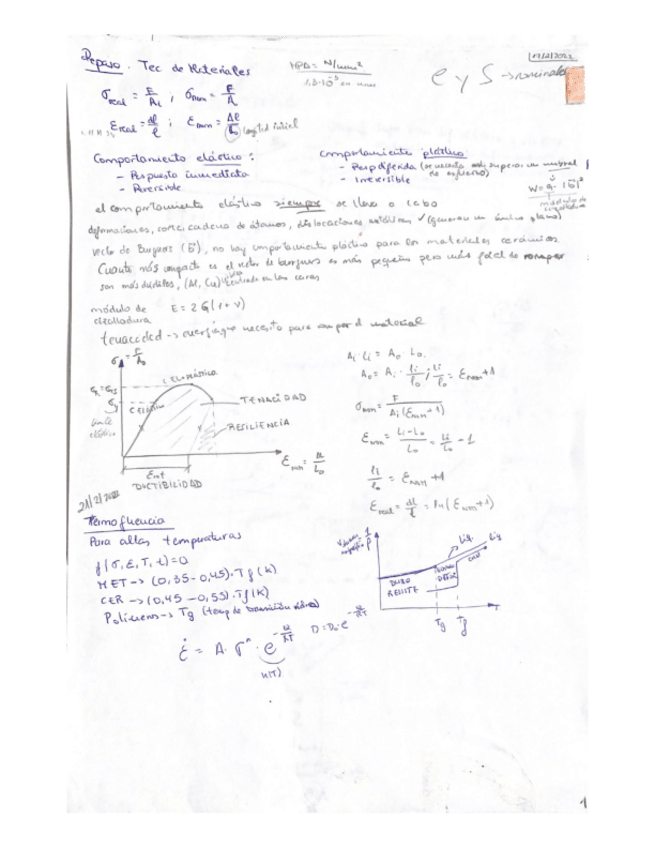 Repaso. Tec de Materiales
MPa = N/mm²
e y S → nominales
σreal = F/Ai ; σnom = F/A
εreal = dl/l ; εnom = Δl/l₀ longitud inicial
Comportamiento elástico:
- Respuesta inmediata
- Reversible
comportamiento plástico
- Respdiferida (se necesita superar un umbral de esfuerzo)
- Irreversible
el comportamiento elástico siempre se lleva a cabo
deformaciones, dislocaciones
vector de Burguers (b), no hay comportamiento plástico para los materiales cerámicos
Cuanto más compacto es el vector de burguers es más pequeño pero más fácil de romper
son más dúctiles, (Al, Cu) centrado en las caras
módulo de cizalladura E = 2G(1+ν)
tenacidad → energía que necesito para romper el material
σ = F/A₀
C ELASTOPLÁSTICO
C elástico
límite elástico
TENACIDAD
RESILIENCIA
εnom = Δl/L₀
εnt
DUCTIBILIDAD
Ai · li = A₀ · L₀
A₀ = Ai · li/l₀ ; li/l₀ = εnom + 1
σnom = F/Ai(εnom+1)
εnom = Li-L₀/L₀ = Li/L₀ - 1
li/l₀ = εnom + 1
εreal = dl/l = ln(εnom+1)
21/2/2022
Termofluencia
Para altas temperaturas
f(σ, ε, T, t) = 0
MET → (0,35-0,45)·Tf (K)
CER → (0,45-0,55)·Tf(K)
Polímeros → Tg (temp de transición vítrea)
ε̇ = A · σⁿ · e^(-Q/RT)
D = D₀ · e^(-Q/RT)
k(T)
1/ρ
DURO
RESISTE
Líq.
Liq
T
Tg Tf
1